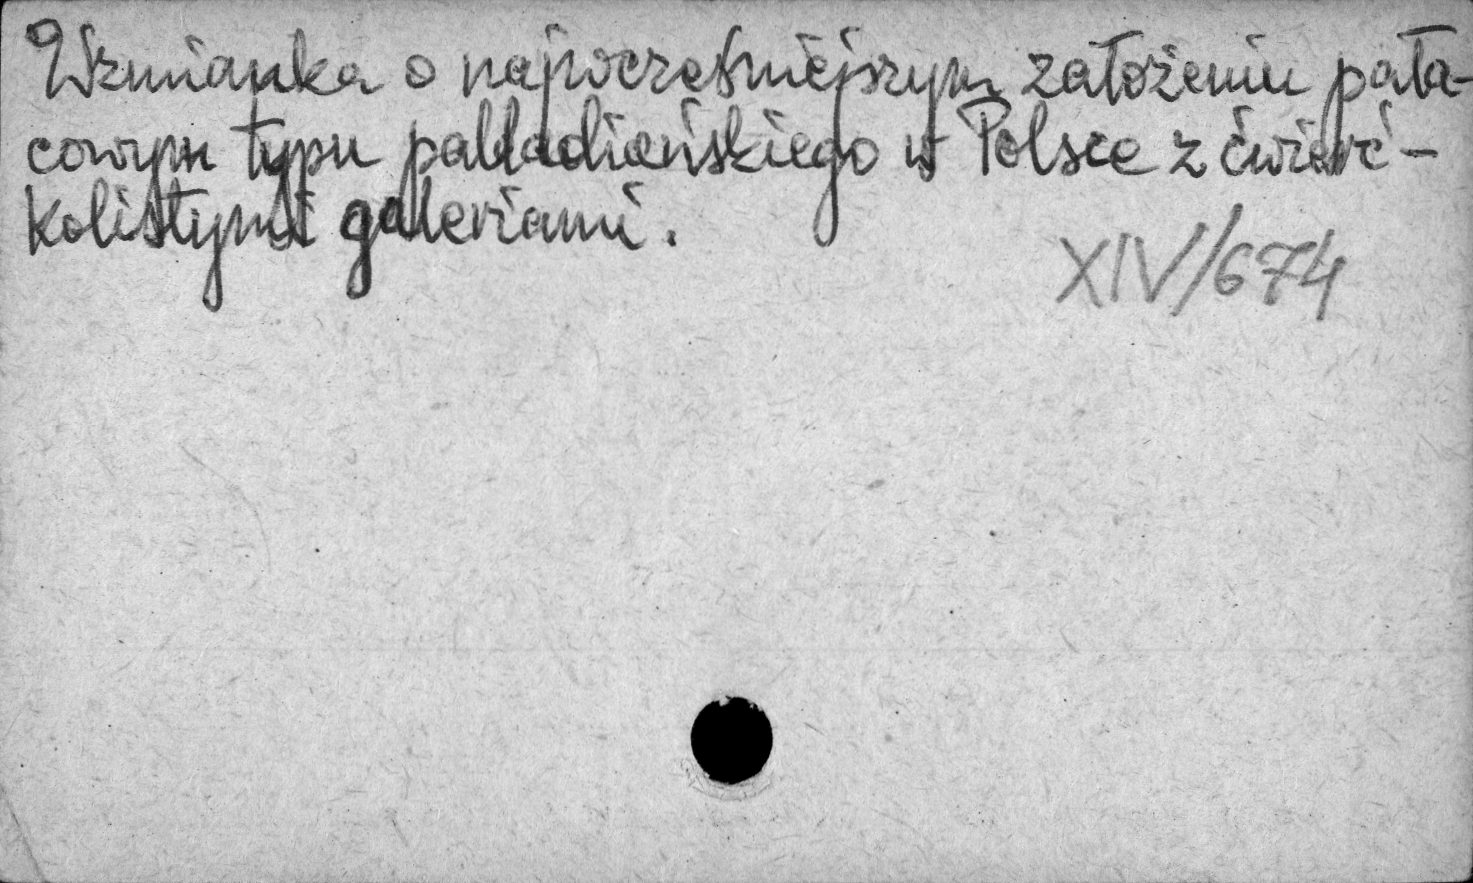 Wzmianka o najwcześniejszym założeniu pała-
cowym typu palladiańskiego w Polsce z ćwierć-
kolistymi galeriami.
XIV/674